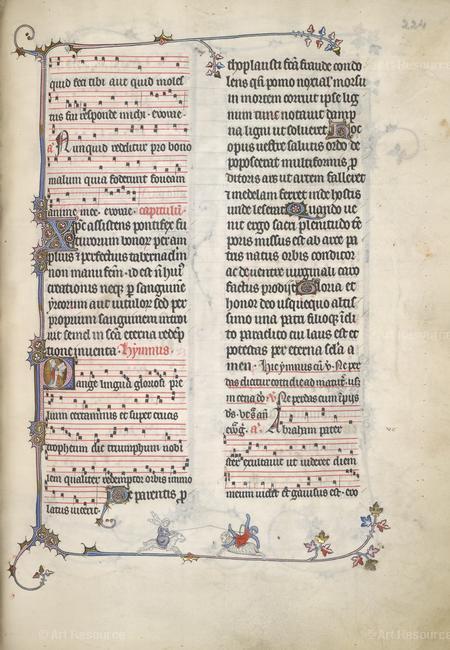 224
quid feci tibi aut quid moles
tus fui responde michi. evovae.
a. Nunquid redditur pro bono
malum quia foderunt foveam
anime mee. evovae. capitulum.
Xpc assistens pontifex fu
turorum bonor per am
plius et perfectius tabernaclm
non manu fcm. id est n hui
creationis neqz p sanguine
yrcorum aut vitulor sed per
proprium sanguinem introi
vit semel in sca eterna redep
tione inventa. Hymnus.
Pange lingua gloriosi pre
lium certaminis et super crucis
tropheum dic triumphum nobi
lem qualiter redemptor orbis immo
latus vicerit. De parentis p
thoplausti fca fraude condo
lens qn pomo noxial morsu
in mortem corruit ipse lig
num tunc notavit damp
na ligni ut solveret. Hoc
opus nostre salutis ordo de
poposcerat multiformis p
ditoris ars ut artem falleret
et medelam ferret inde hostis
unde leserat. Quando ve
nit ergo sacri plenitudo te
poris missus est ab arce pa
tris natus orbis conditor
ac de ventre virginali caro
factus prodiit. Gloria et
honor deo usquequo altis
simo una patri filioqz icli
to paraclito cui laus est et
potestas per eterna secla a
men. hic ymnus cu v. Ne per
das dicitur cotidie ad matut. usqz
in cena do. v. Ne perdas cum ipiis
ds.
ewg. a. Abraham pater
vester exultavit ut videret diem
meum vidit et gavisus est. evo
© Art Resource
© Art Resource